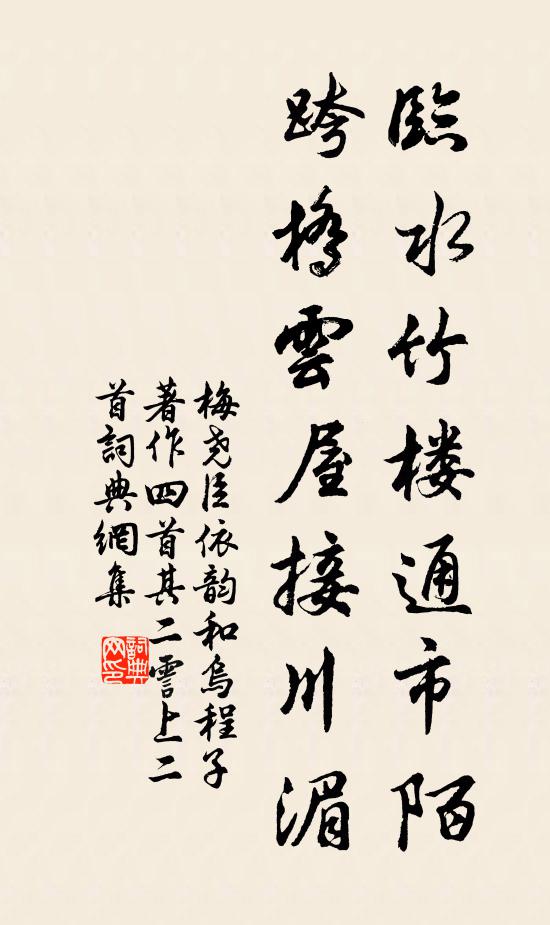 臨水竹楼通市陌
跨橋雲屋接川湄
梅尧臣依韵和烏程子
著作四首其二霅上二
首詞典網集
詞典網印